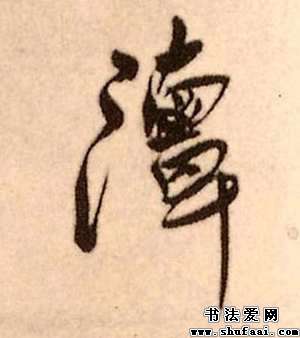 潭
书法爱网
www.shufaai.com